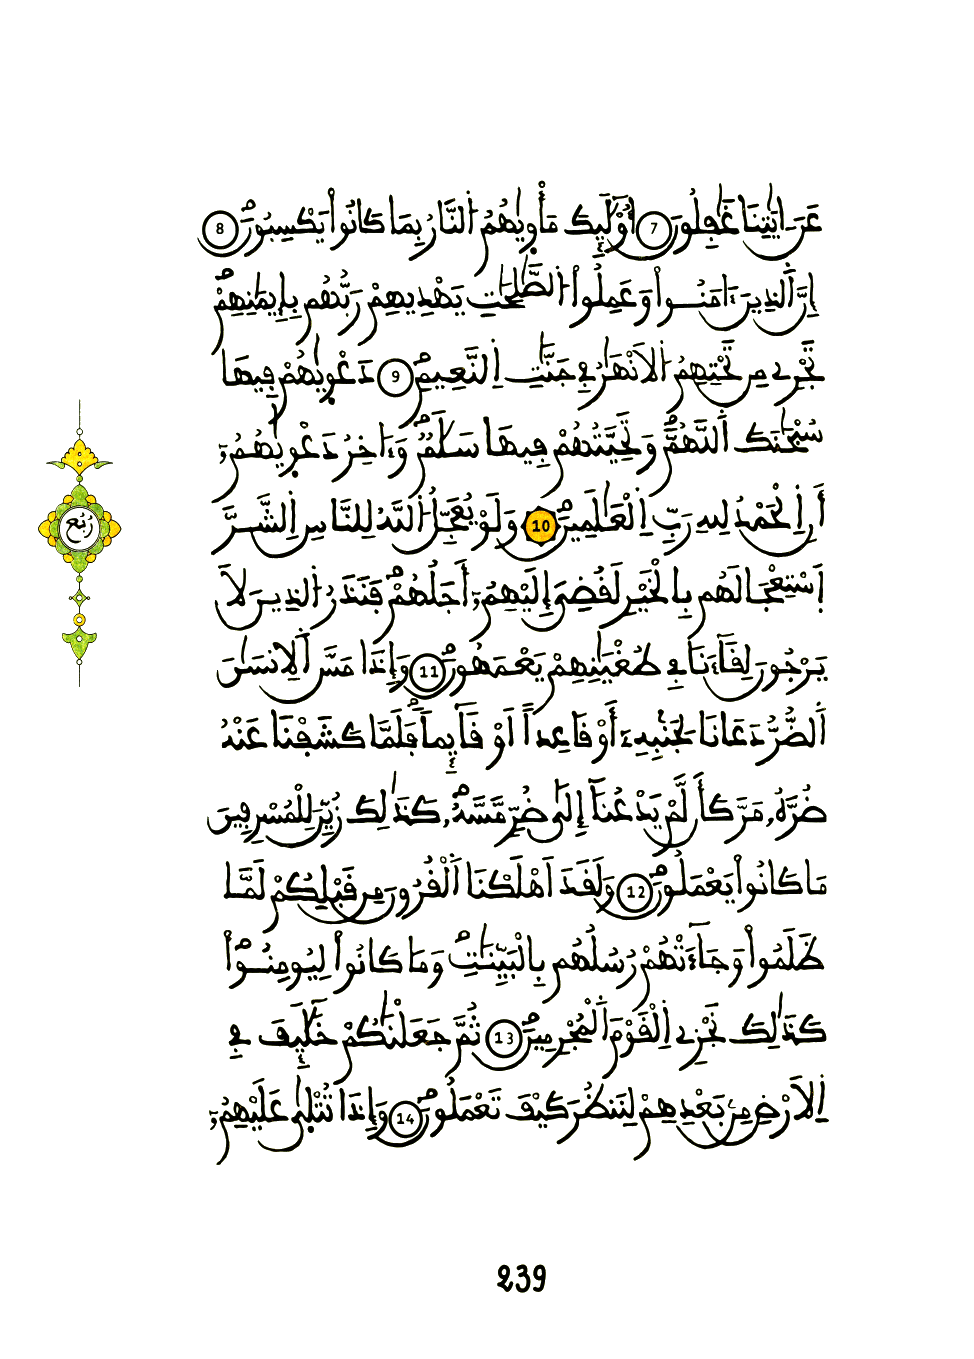 عَنَ اٰيَٰتِنَا غَٰفِلُونَ 7 أُوْلَٰٓئِكَ مَأْو۪يٰهُمُ اُ۬لنَّارُ بِمَا كَانُواْ يَكْسِبُونَۖ 8
إِنَّ اَ۬لذِينَ ءَامَنُواْ وَعَمِلُواْ اُ۬لصَّٰلِحَٰتِ يَهْدِيهِمْ رَبُّهُم بِإِيمَٰنِهِمْۖ
تَجْرِے مِن تَحْتِهِمُ اُ۬لَانْهَٰرُ فِے جَنَّٰتِ اِ۬لنَّعِيمِۖ 9 دَعْو۪يٰهُمْ فِيهَا
سُبْحَٰنَكَ اَ۬للَّهُمَّۖ وَتَحِيَّتُهُمْ فِيهَا سَلَٰمٞۖ وَءَاخِرُ دَعْو۪يٰهُمُۥٓ
أَنِ اِ۬لْحَمْدُ لِلهِ رَبِّ اِ۬لْعَٰلَمِينَۖ 10 وَلَوْ يُعَجِّلُ اُ۬للَّهُ لِلنَّاسِ اِ۬لشَّرَّ
اَ۪سْتِعْجَالَهُم بِالْخَيْرِ لَقُضِيَ إِلَيْهِمُۥٓ أَجَلُهُمْۖ فَنَذَرُ اُ۬لذِينَ لَا
يَرْجُونَ لِقَآءَنَا فِے طُغْيَٰنِهِمْ يَعْمَهُونَۖ 11 وَإِذَا مَسَّ اَ۬لِانسَٰنَ
اَ۬لضُّرُّ دَعَانَا لِجَنۢبِهِۦٓ أَوْ قَاعِداً اَوْ قَآئِماٗۖ فَلَمَّا كَشَفْنَا عَنْهُ
ضُرَّهُۥ مَرَّ كَأَن لَّمْ يَدْعُنَآ إِلَىٰ ضُرّٖ مَّسَّهُۥۖ كَذَٰلِكَ زُيِّنَ لِلْمُسْرِفِينَ
مَا كَانُواْ يَعْمَلُونَۖ 12 وَلَقَدَ اَهْلَكْنَا اَ۬لْقُرُونَ مِن قَبْلِكُمْ لَمَّا
ظَلَمُواْ وَجَآءَتْهُمْ رُسُلُهُم بِالْبَيِّنَٰتِۖ وَمَا كَانُواْ لِيُومِنُواْۖ
كَذَٰلِكَ نَجْزِے اِ۬لْقَوْمَ اَ۬لْمُجْرِمِينَۖ 13 ثُمَّ جَعَلْنَٰكُمْ خَلَٰٓئِفَ فِے
اِ۬لَارْضِ مِنۢ بَعْدِهِمْ لِنَنظُرَ كَيْفَ تَعْمَلُونَۖ 14 وَإِذَا تُتْل۪يٰ عَلَيْهِمُۥٓ
رُبُع
239